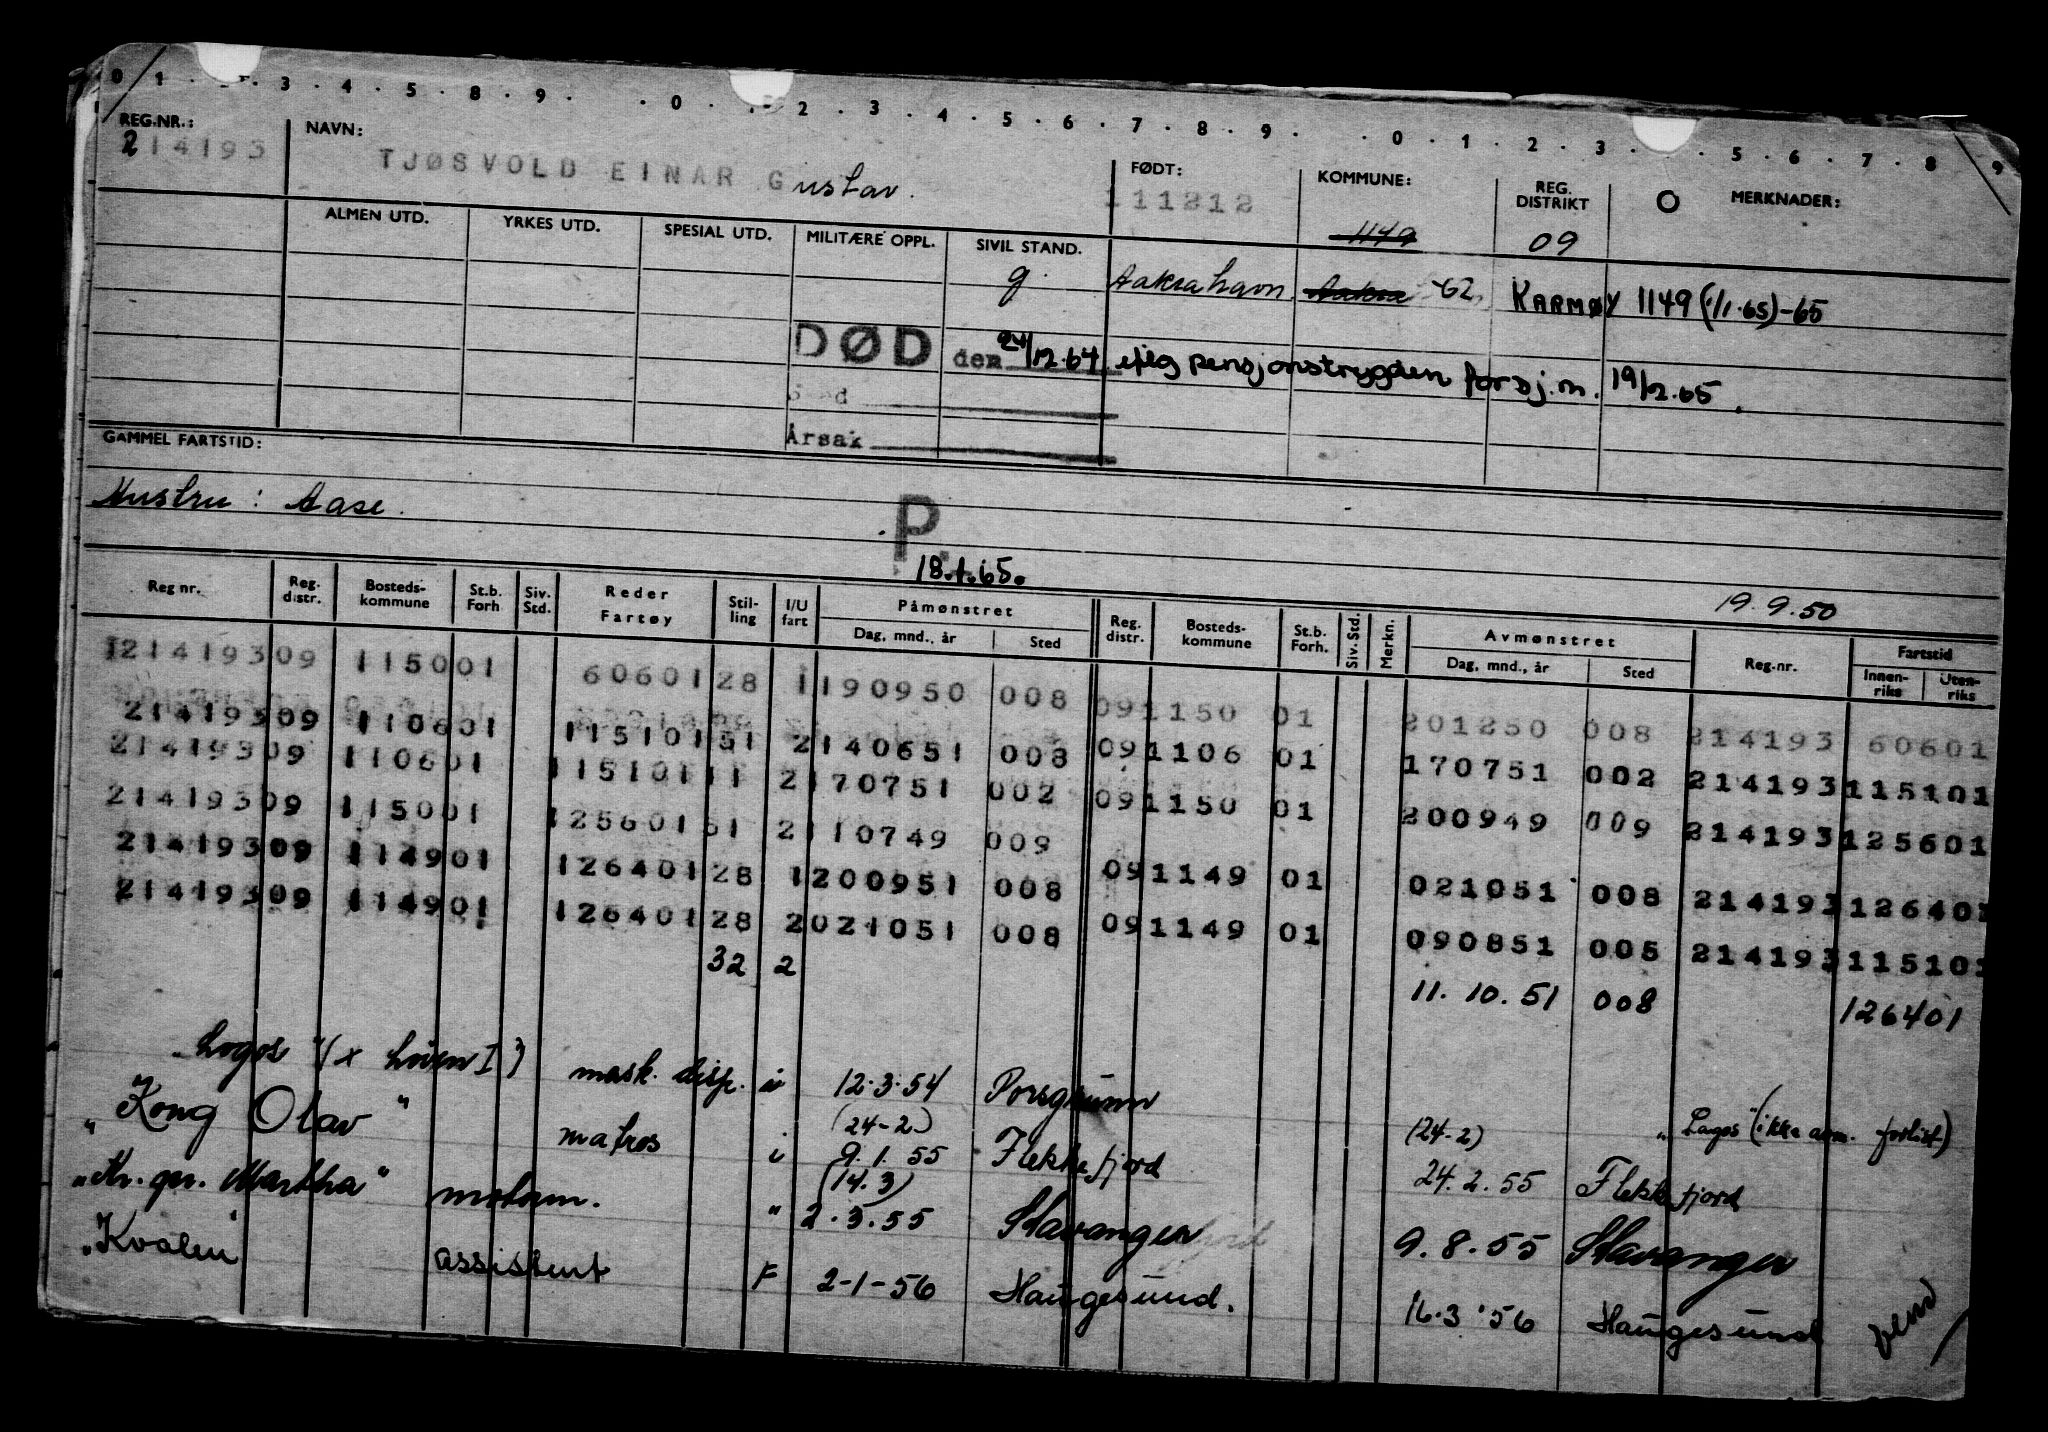 0 1 3 . 4 . 5 . 8 . 9 . . 0 . . 2 . 3 . 4 . 5 . 6 . 7 . 8 . 9 . . 0 . 1 . 2 . 3 . . 5 . 6 . 7 . 8 9
REG.NR.: NAVN: FØDT: KOMMUNE: REG. DISTRIKT O MERKNADER:
214193 TJØSVOLD EINAR Gustav. 111212 1149 09
ALMEN UTD. YRKES UTD. SPESIAL UTD. MILITÆRE OPPL. SIVIL STAND.
g. Aakrahavn, Aakra -62, KARMØY 1149 (1/1.65)-65
DØD den 24/12.64 iflg pensjonstrygden for sj.m. 19/2.65.
Sted
Årsak
GAMMEL FARTSTID:
Hustru : Aase.
P.
18.1.65.
19.9.50
Reg nr. Reg. distr. Bosteds- kommune St.b. Forh Siv. Std. Reder Fartøy Stil- ling I/U fart Påmønstret Dag, mnd., år Sted Reg. distr. Bosteds- kommune St.b. Forh. Siv. Std. Merkn. Avmønstret Dag, mnd., år Sted Reg.nr. Fartstid Innen- riks Uten- riks
121419309 115001 60601 28 1 190950 008 091150 01 201250 008 214193 60601
21419309 110601 115101 51 2 140651 008 091106 01 170751 002 214193 115101
21419309 110601 115101 11 2 170751 002 091150 01 200949 009 214193 125601
21419309 115001 125601 51 2 110749 009
21419309 114901 126401 28 1 200951 008 091149 01 021051 008 214193 126401
21419309 114901 126401 28 2 021051 008 091149 01 090851 005 214193 115101
32 2 11. 10. 51 008 126401
"Lagos" (x Løven I) mask. disp. i 12.3.54 Porsgrunn "Lagos" (ikke avm. forlist)
"Kong Olav" matros i (24-2) 9.1.55 Flekkefjord (24-2) 24.2.55 Flekkefjord
"Kr. pr. Martha" motorm. " (14.3) 2.3.55 Stavanger 9.8.55 Stavanger
"Kvalen" assistent F 2-1-56 Haugesund. 16.3.56 Haugesund